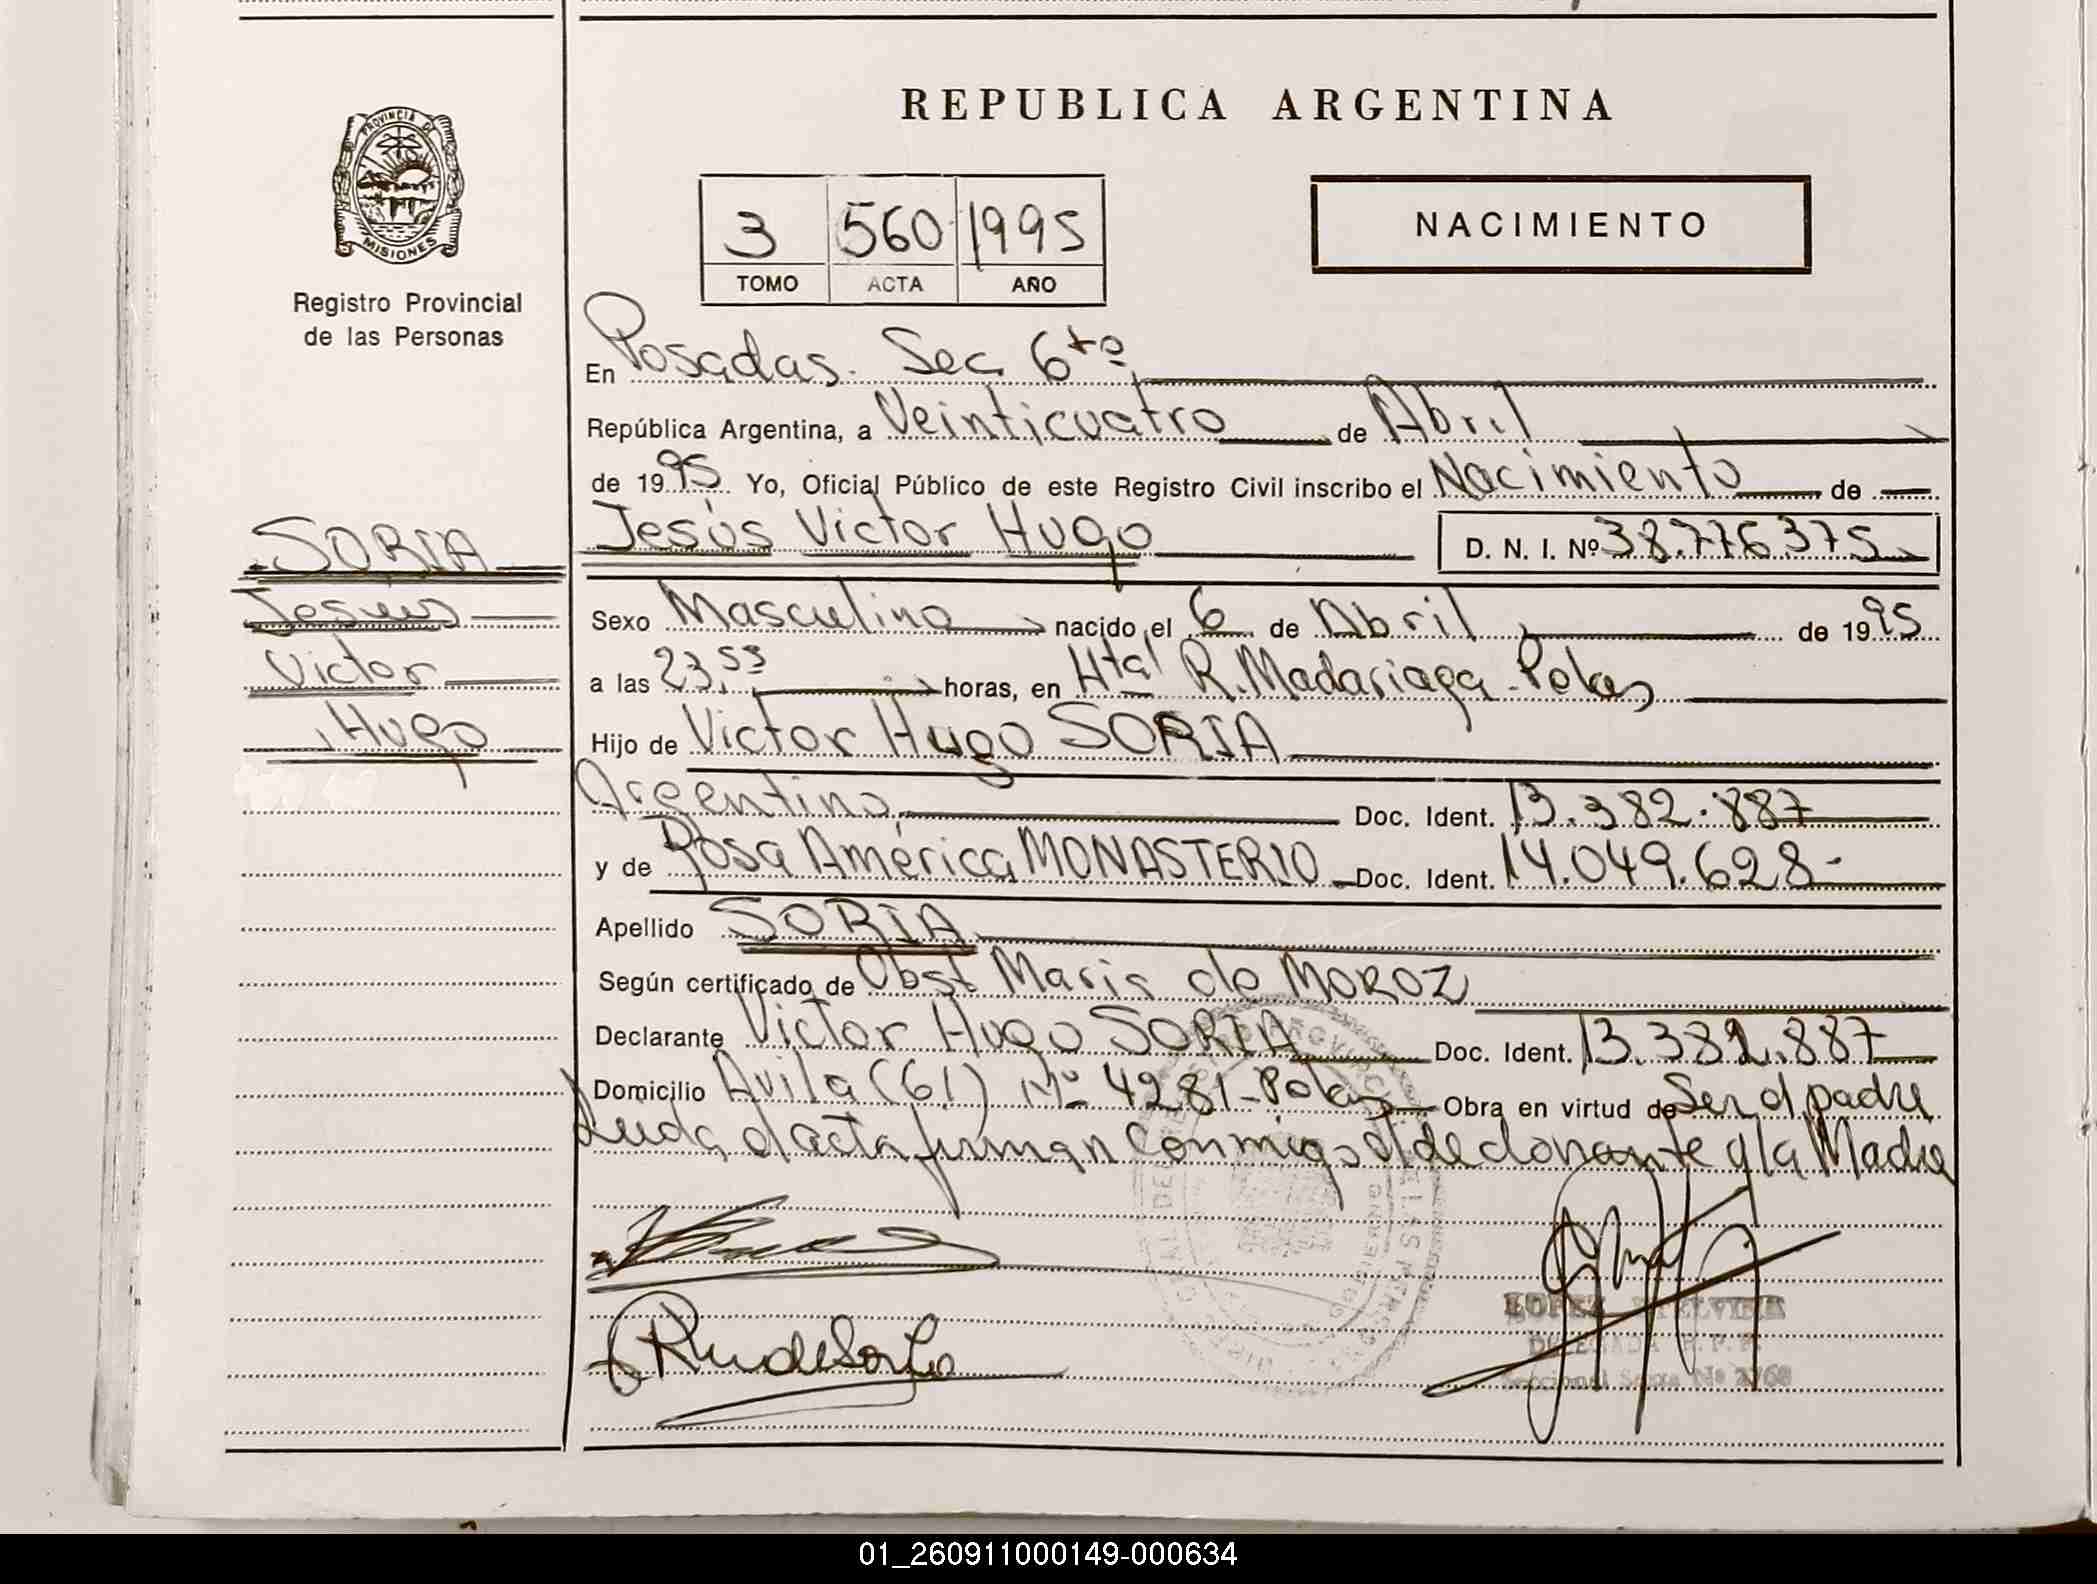 REPUBLICA ARGENTINA
PROVINCIA DE
MISIONES
Registro Provincial
de las Personas
3 560 1995
TOMO ACTA AÑO
NACIMIENTO
En Posadas. Sec. 6ta
República Argentina, a Veinticuatro de Abril
de 1995. Yo, Oficial Público de este Registro Civil inscribo el Nacimiento de
SORIA
Jesus
Victor
Hugo
Jesús Victor Hugo D. N. I. Nº 38.776.375
Sexo Masculino nacido el 6 de Abril de 1995
a las 23,55 horas, en Htal R. Madariaga - Pdas
Hijo de Victor Hugo SORIA
Argentino, Doc. Ident. 13.382.887
y de Rosa América MONASTERIO Doc. Ident. 14.049.628-
Apellido SORIA
Según certificado de Obst Maria de MOROZ
Declarante Victor Hugo SORIA Doc. Ident. 13.382.887
Domicilio Avila (61) Nº 4281 - Pdas Obra en virtud de Ser el padre
Leida el acta firman conmigo el declarante y la Madre
LOPEZ
DELEGADA R.P.P.
Seccional Sexta Nº 2768
01_260911000149-000634